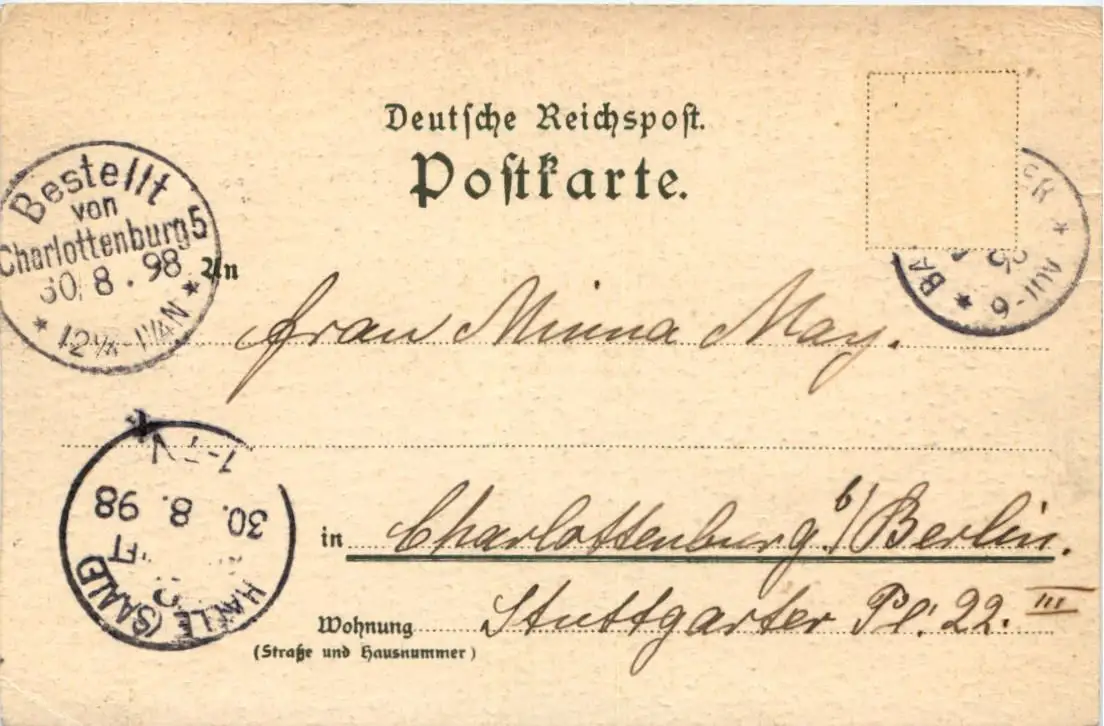 Deutsche Reichspost.
Postkarte.
Bestellt
von
Charlottenburg 5
30/8.98
* 12¼-1¼N *
An
Frau Minna May.
in Charlottenburg b/Berlin.
Wohnung Stuttgarter Pl. 22. III
(Straße und Hausnummer)
HALLE (SAALE)
30. 8. 98